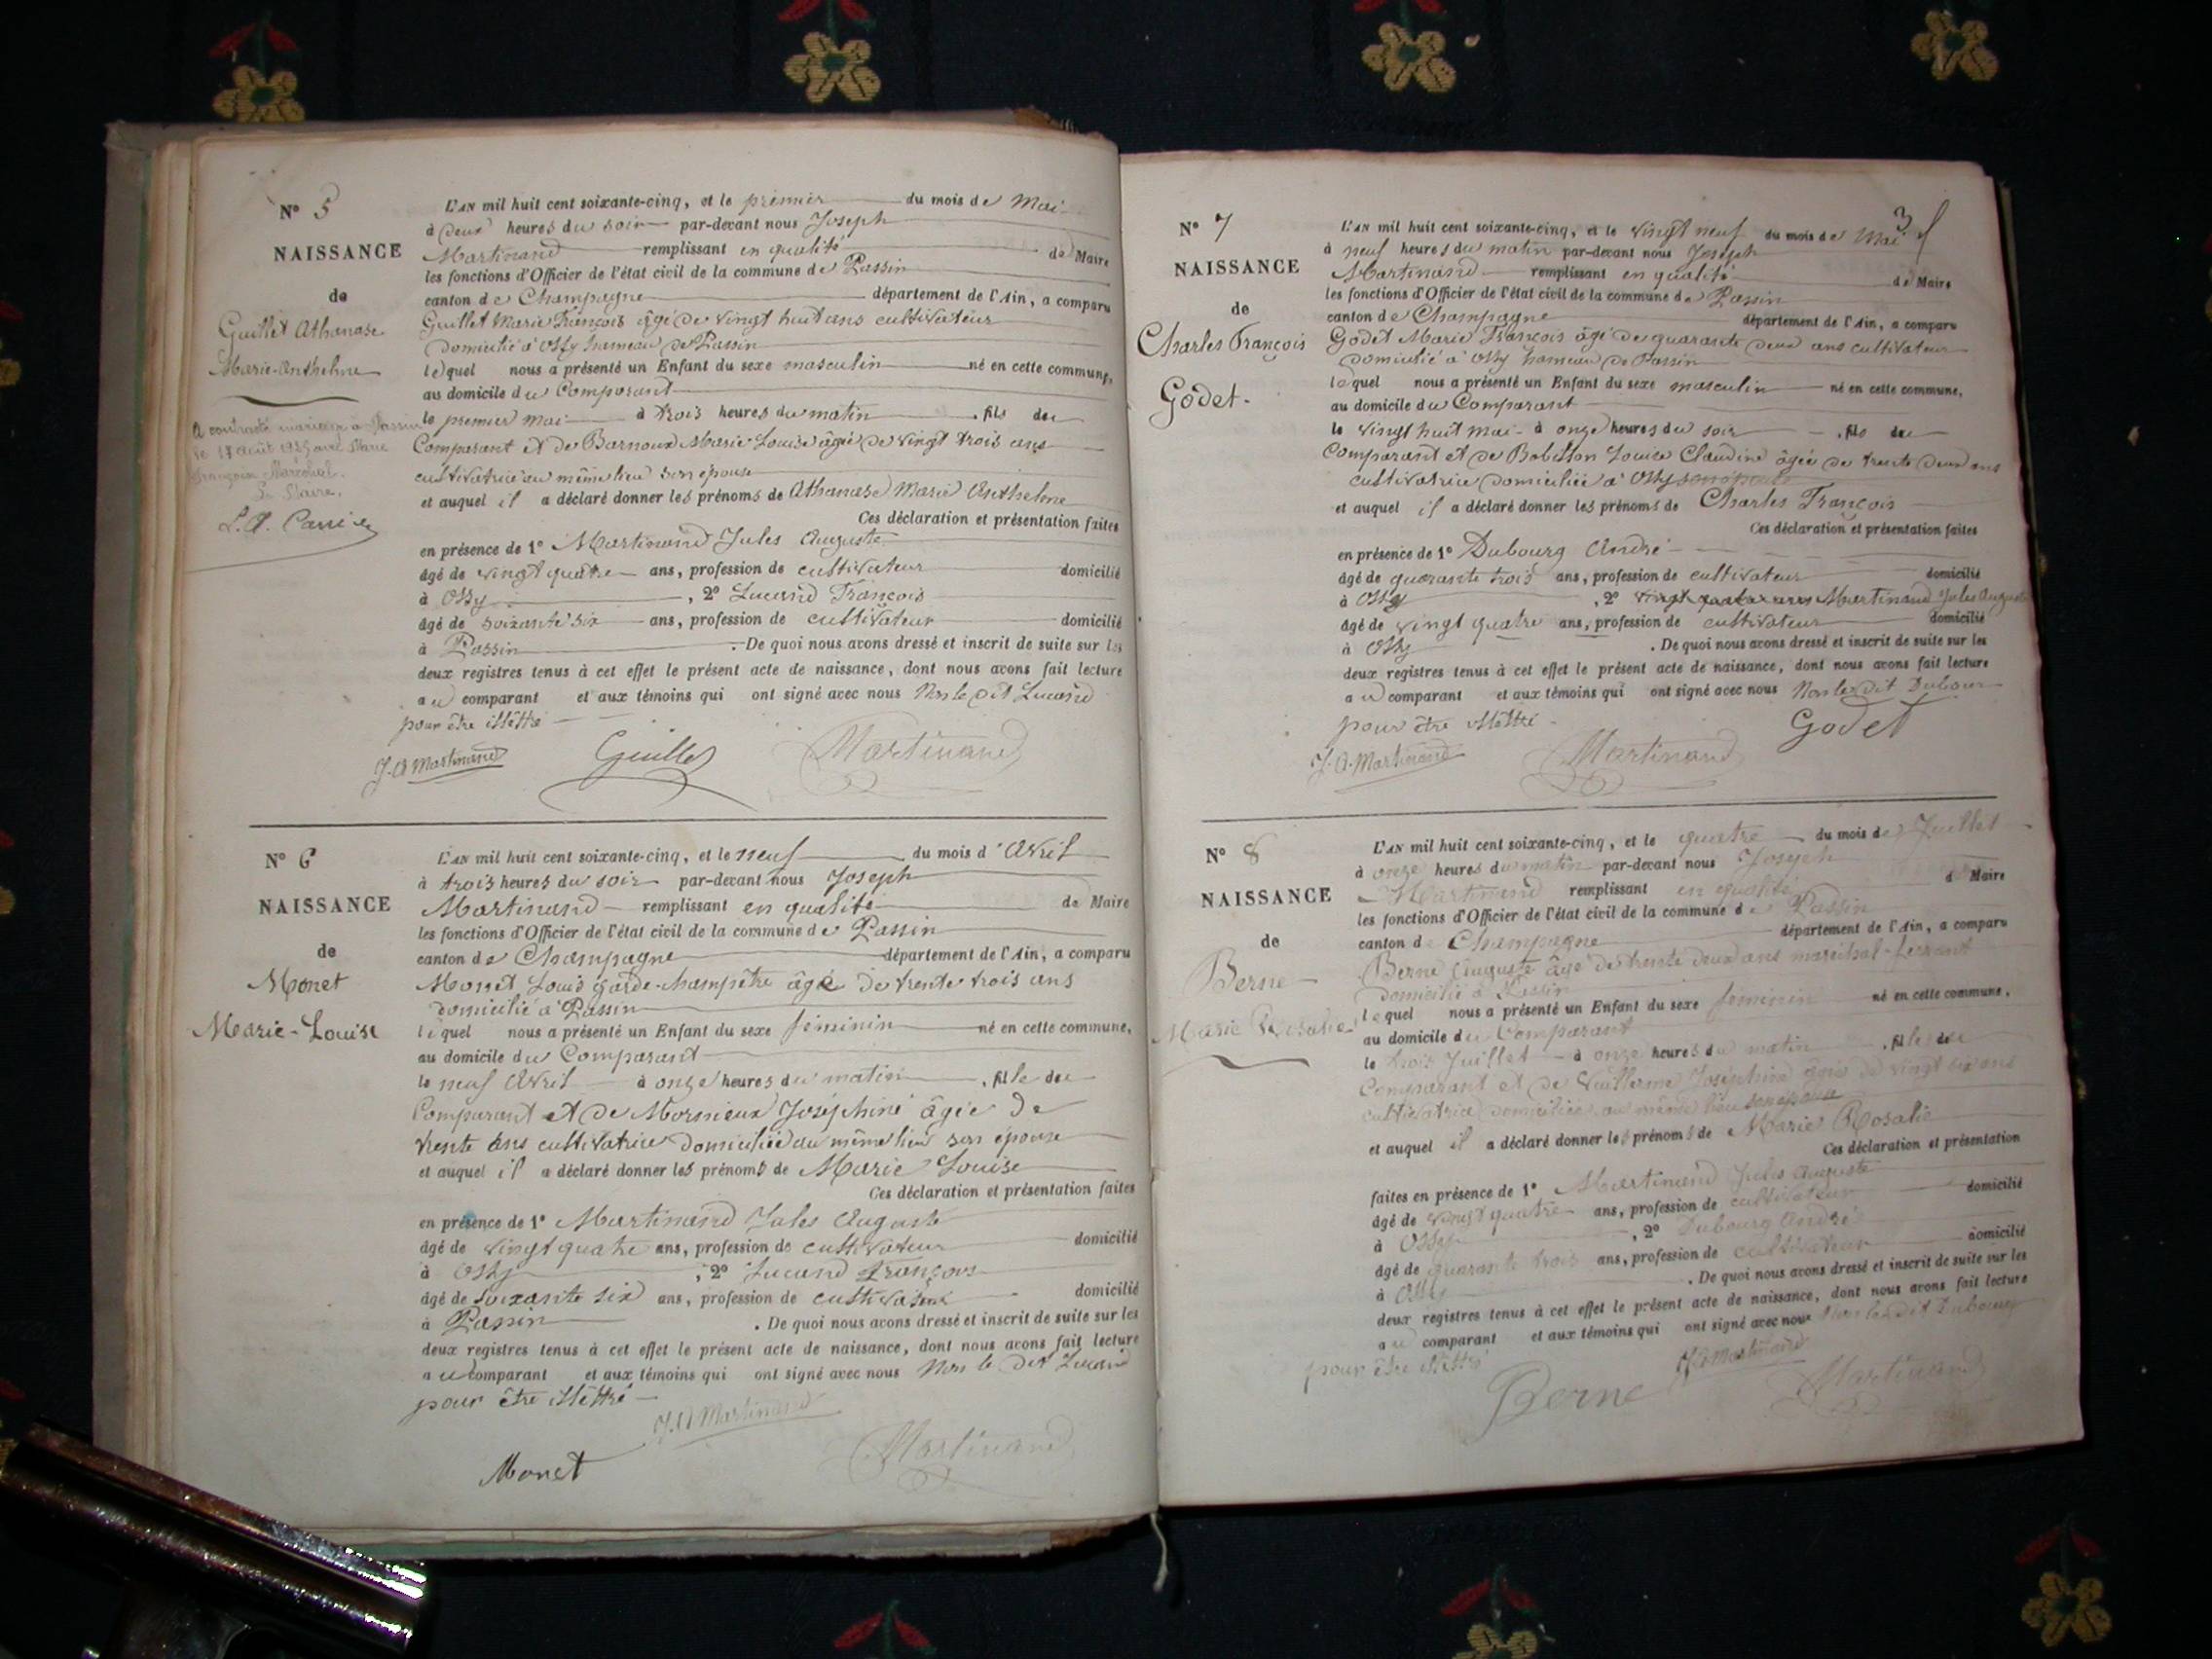 N° 5
NAISSANCE
de
Guillet Athanase
Marie-Anthelme
A contracté mariage à Passin
le 18 août 1925 avec Marie
Françoise Maréchal.
Le Maire,
L'AN mil huit cent soixante-cinq, et le premier du mois de Mai
à deux heures du soir par-devant nous Joseph
Martinand remplissant en qualité de Maire
les fonctions d'Officier de l'état civil de la commune de Passin
canton de Champagne département de l'Ain, a comparu
Guillet Marie François âgé de vingt huit ans cultivateur
domicilié à Ossy hameau de Passin
lequel nous a présenté un Enfant du sexe masculin né en cette commune,
au domicile du Comparant
le premier mai à trois heures du matin, fils du
Comparant et de Barnoux Marie Louise âgée de vingt trois ans
cultivatrice au même lieu son épouse
et auquel il a déclaré donner les prénoms de Athanase Marie Anthelme
Ces déclaration et présentation faites
en présence de 1° Martinand Jules Auguste
âgé de vingt quatre ans, profession de cultivateur domicilié
à Ossy, 2° Lucand François
âgé de soixante six ans, profession de cultivateur domicilié
à Passin. De quoi nous avons dressé et inscrit de suite sur les
deux registres tenus à cet effet le présent acte de naissance, dont nous avons fait lecture
au comparant et aux témoins qui ont signé avec nous Non le dit Lucand
pour être illêttré
J. A Martinand Guillet Martinand
N° 6
NAISSANCE
de
Monet
Marie-Louise
L'AN mil huit cent soixante-cinq, et le neuf du mois d'Avril
à trois heures du soir par-devant nous Joseph
Martinand remplissant en qualité de Maire
les fonctions d'Officier de l'état civil de la commune de Passin
canton de Champagne département de l'Ain, a comparu
Monet Louis garde-champêtre âgé de trente trois ans
domicilié à Passin
lequel nous a présenté un Enfant du sexe féminin né en cette commune,
au domicile du Comparant
le neuf Avril à onze heures du matin, fille du
Comparant et de Mornieux Joséphine âgée de
trente ans cultivatrice domiciliée au même lieu son épouse
et auquel il a déclaré donner les prénoms de Marie Louise
Ces déclaration et présentation faites
en présence de 1° Martinand Jules Auguste
âgé de vingt quatre ans, profession de cultivateur domicilié
à Ossy, 2° Lucand François
âgé de soixante six ans, profession de cultivateur domicilié
à Passin. De quoi nous avons dressé et inscrit de suite sur les
deux registres tenus à cet effet le présent acte de naissance, dont nous avons fait lecture
au comparant et aux témoins qui ont signé avec nous Non le dit Lucand
pour être illêttré
J. A Martinand
Monet Martinand
3
N° 7
NAISSANCE
de
Charles François
Godet.
L'AN mil huit cent soixante-cinq, et le vingt neuf du mois de Mai
à neuf heures du matin par-devant nous Joseph
Martinand remplissant en qualité de Maire
les fonctions d'Officier de l'état civil de la commune de Passin
canton de Champagne département de l'Ain, a comparu
Godet Marie François âgé de quarante deux ans cultivateur
domicilié à Ossy hameau de Passin
lequel nous a présenté un Enfant du sexe masculin né en cette commune,
au domicile du Comparant
le vingt huit mai à onze heures du soir, fils du
Comparant et de Bobillon Louise Claudine âgée de trente deux ans
cultivatrice domiciliée à Ossy son épouse
et auquel il a déclaré donner les prénoms de Charles François
Ces déclaration et présentation faites
en présence de 1° Dubourg André
âgé de quarante trois ans, profession de cultivateur domicilié
à Ossy, 2° vingt quatre ans Martinand Jules Auguste
âgé de vingt quatre ans, profession de cultivateur domicilié
à Ossy. De quoi nous avons dressé et inscrit de suite sur les
deux registres tenus à cet effet le présent acte de naissance, dont nous avons fait lecture
au comparant et aux témoins qui ont signé avec nous Non le dit Dubour
pour être illêttré
J. A. Martinand Martinand Godet
N° 8
NAISSANCE
de
Berne
Marie Rosalie
L'AN mil huit cent soixante-cinq, et le quatre du mois de Juillet
à onze heures du matin par-devant nous Joseph
Martinand remplissant en qualité d Maire
les fonctions d'Officier de l'état civil de la commune de Passin
canton de Champagne département de l'Ain, a comparu
Berne Auguste âgé de trente deux ans maréchal-ferrant
domicilié à Passin
lequel nous a présenté un Enfant du sexe féminin né en cette commune,
au domicile du Comparant
le trois Juillet à onze heures du matin, fille du
Comparant et de Vuillerme Joséphine âgée de vingt six ans
cultivatrice domiciliée au même lieu son épouse
et auquel il a déclaré donner les prénoms de Marie Rosalie
Ces déclaration et présentation
faites en présence de 1° Martinand Jules Auguste
âgé de vingt quatre ans, profession de cultivateur domicilié
à Ossy, 2° Dubourg André
âgé de quarante trois ans, profession de cultivateur domicilié
à Ossy. De quoi nous avons dressé et inscrit de suite sur les
deux registres tenus à cet effet le présent acte de naissance, dont nous avons fait lecture
au comparant et aux témoins qui ont signé avec nous Non le dit Dubourg
pour être illêttré
J. A Martinand
Berne Martinand